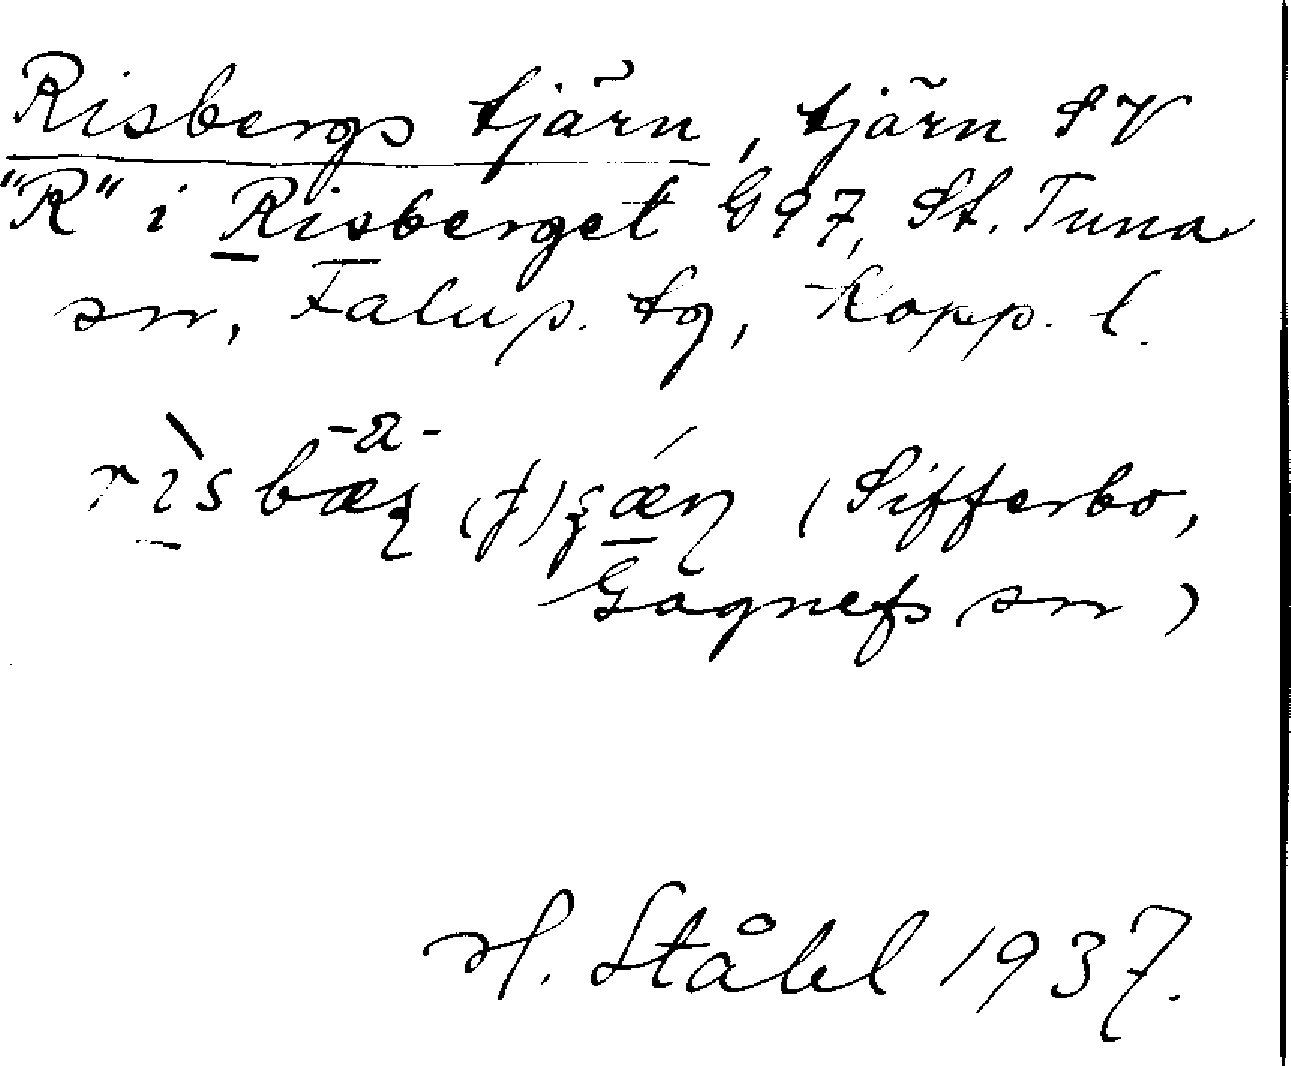 Risbergs tjärn, tjärn SV
"R" i Risberget G97, St. Tuna
sn, Falu p. tg, Kopp. l.
-a-
(Sifferbo,
Gagnefs sn)
H. Ståhl 1937.